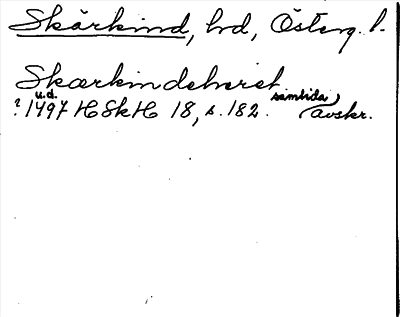 Skärkind, hd,Österg. l.
Skærkindeheret
u.d. samtida
? 1497 HSkH 18, s. 182. (avskr.